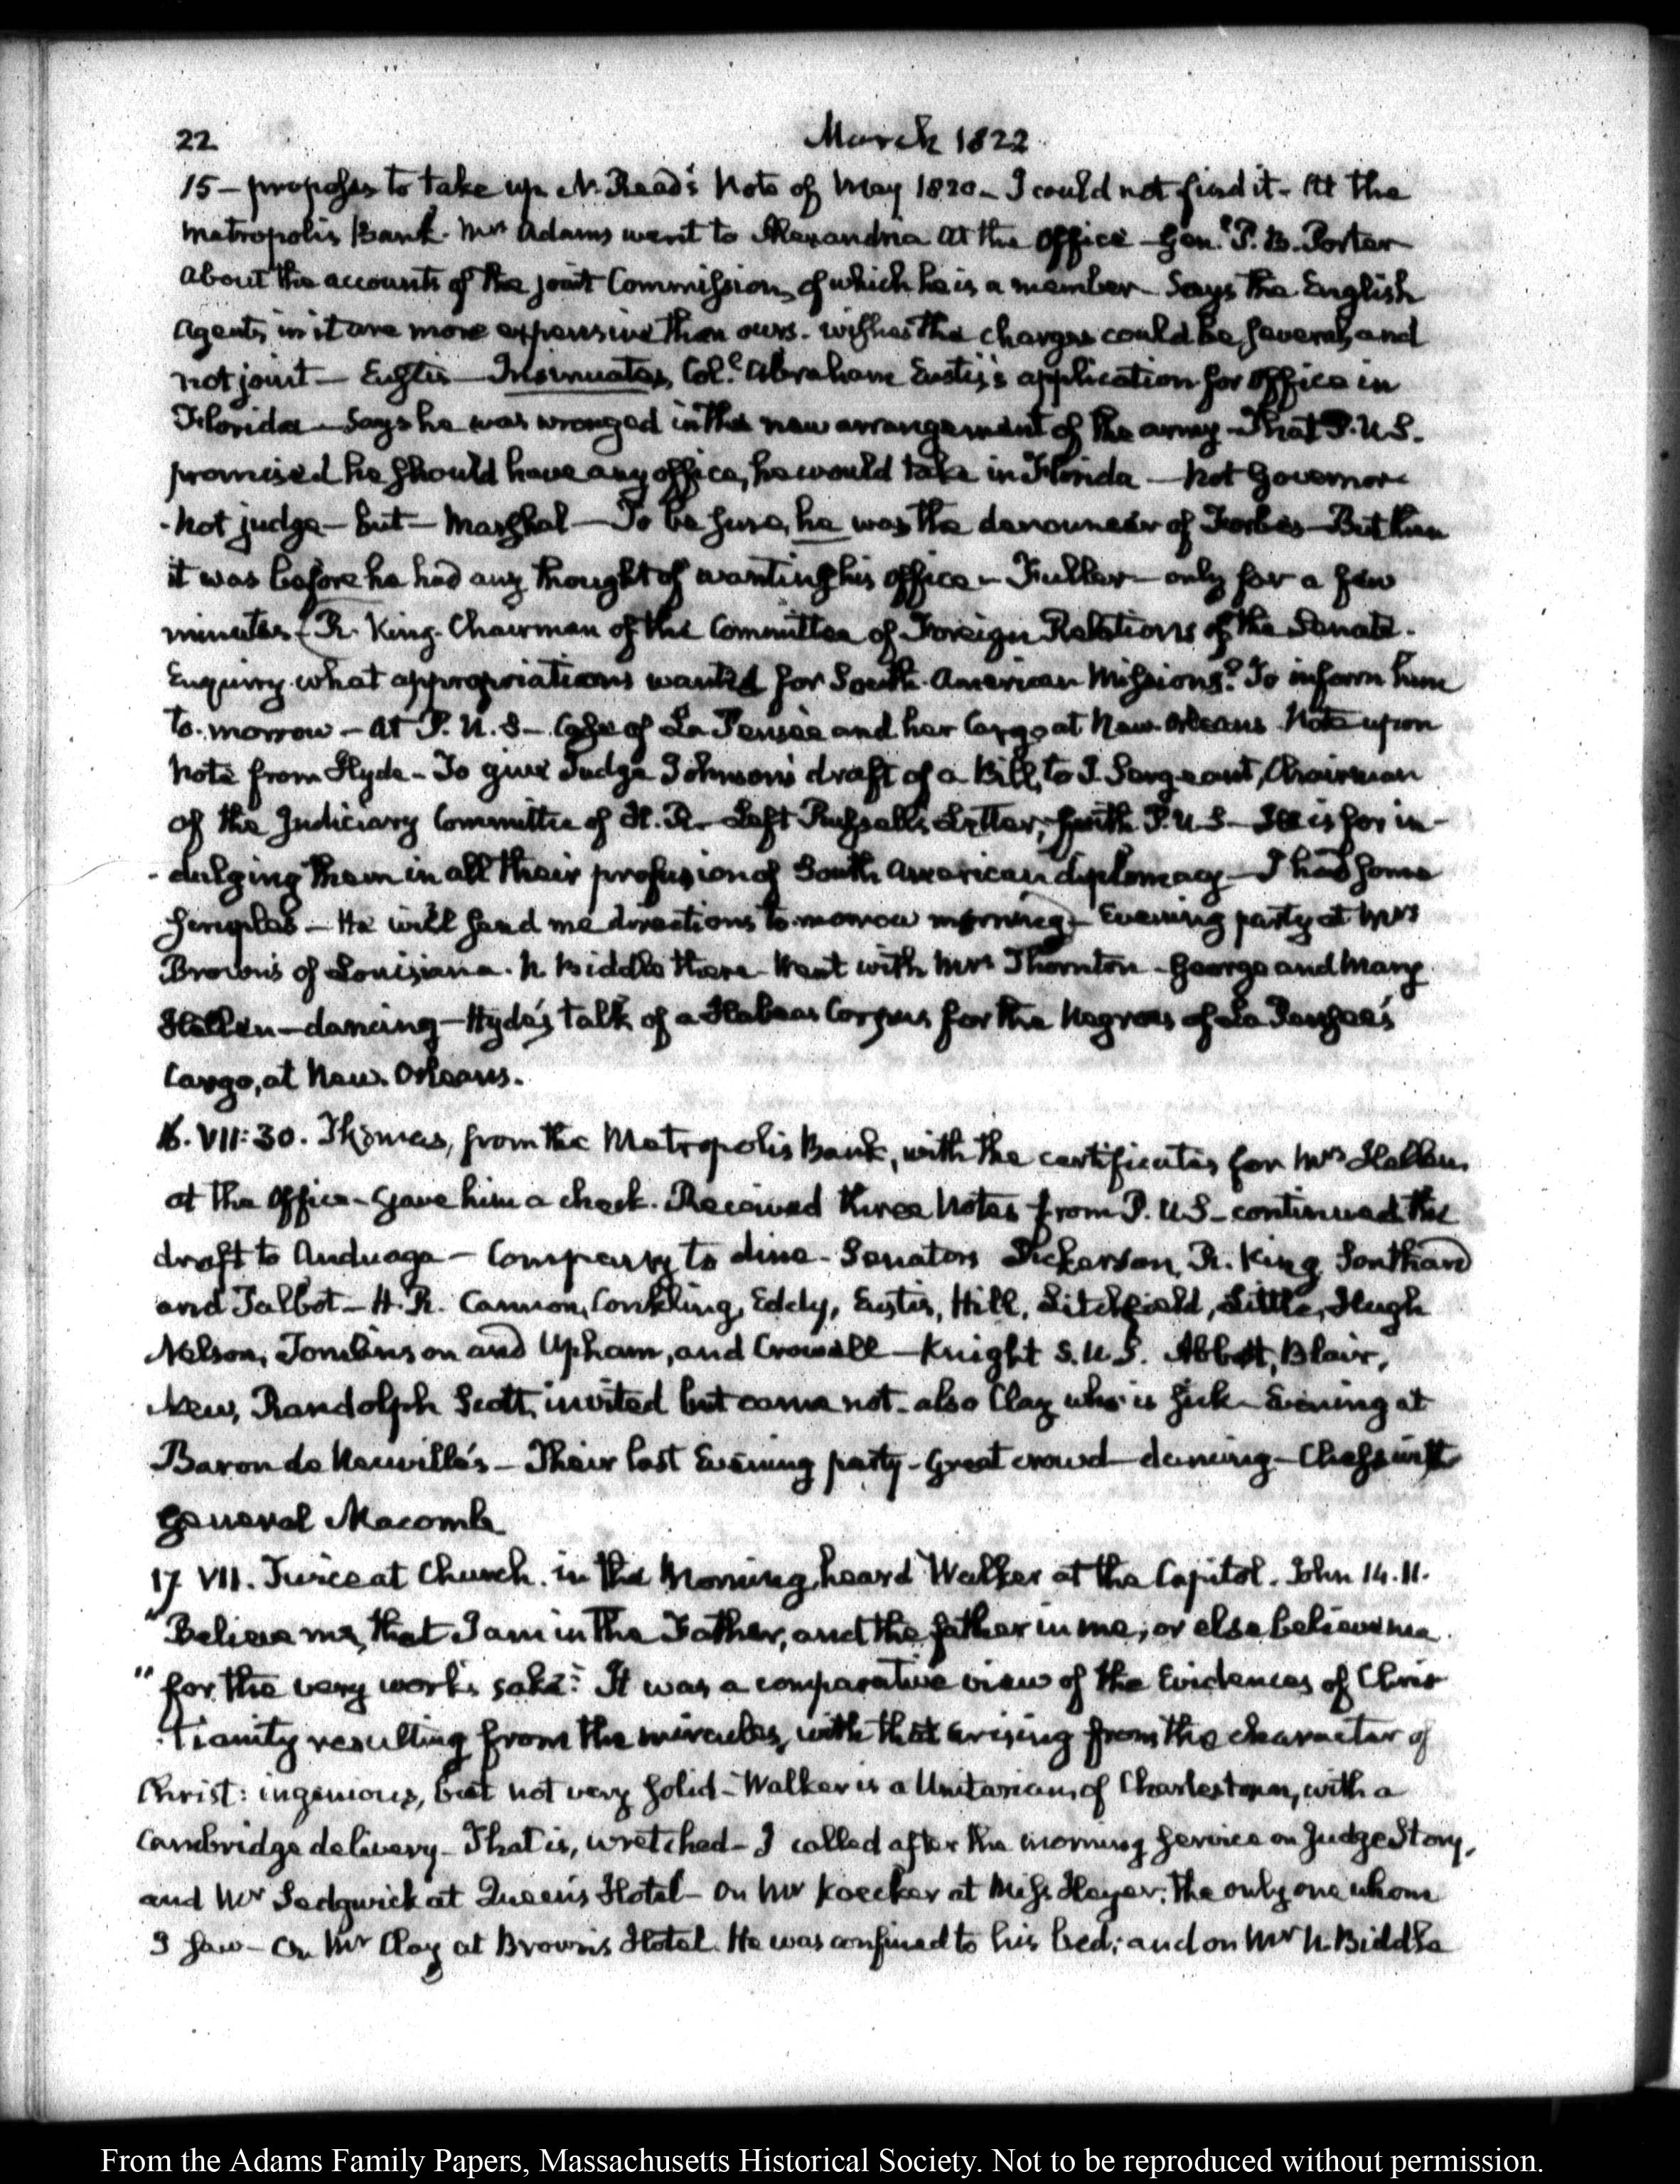 22 March 1822
15 – proposes to take up N. Read's Note of May 1820 – I could not find it – At the
Metropolis Bank. Mrs Adams went to Alexandria At the Office – Genl. P. B. Porter
about the accounts of the joint Commission, of which he is a member – Says the English
Agents in it are more expensive than ours. wishes the charges could be several, and
not joint – Eustis – Insinuates, Coll. Abraham Eustis's application for Office in
Florida – Says he was wronged in the new arrangement of the army – That P.U.S.
promised he should have any office, he would take in Florida – Not Governor
– Not judge – But – Marshal – To be sure, he was the denouncer of Forbes – But then
it was before he had any thought of wanting his office – Fuller – only for a few
minutes – R. King. Chairman of the Committee of Foreign Relations of the Senate.
Enquiry what appropriations wanted for South-American Missions? To inform him
to-morrow – At P.U.S – Case of La Pensée and her Cargo at New-Orleans. Note upon
Note from Hyde – To give Judge Johnson's draft of a Bill, to J. Sergeant, Chairman
of the Judiciary Committee of H.R. – Left Russell's Letter, with P.U.S – He is for in-
-dulging them in all their profusion of South American diplomacy – I had some
scruples – He will send me directions to-morrow morning – Evening party at Mrs
Brown's of Louisiana. N. Biddle there – Went with Mrs Thornton – George and Mary
Hellen – dancing – Hyde's talk of a Habeas Corpus for the Negroes of La Pensée's
Cargo, at New-Orleans.
16. VII:30. Thomas, from the Metropolis Bank, with the certificates for Mrs Hellen.
at the Office – Gave him a check. Received three Notes from P.U.S – continued the
draft to Anduaga – Company to dine – Senators Dickerson, R. King, Southard
and Talbot – H.R. Cannon, Conkling, Eddy, Eustis, Hill, Litchfield, Little, Hugh
Nelson, Tomlinson and Upham, and Crowell – Knight S.U.S. Abbot, Blair,
New, Randolph Scott, invited but came not – also Clay who is sick – Evening at
Baron de Neuville's – Their last Evening party – Great crowd – dancing – Chess with
General Macomb
17. VII. Twice at Church. in the Morning, heard Walker at the Capitol. John 14.11.
"Believe me, that I am in the Father, and the father in me; or else believe me
"for the very works sake." It was a comparative view of the Evidences of Chris
-tianity resulting from the miracles, with that arising from the character of
Christ: ingenious, but not very solid – Walker is a Unitarian, of Charlestown, with a
Cambridge delivery – That is, wretched – I called after the morning service on Judge Story,
and Mr Sedgwick at Queen's Hotel – On Mr Koecker at Miss Heyer; the only one whom
I saw – On Mr Clay at Brown's Hotel. He was confined to his bed; and on Mr N. Biddle
From the Adams Family Papers, Massachusetts Historical Society. Not to be reproduced without permission.